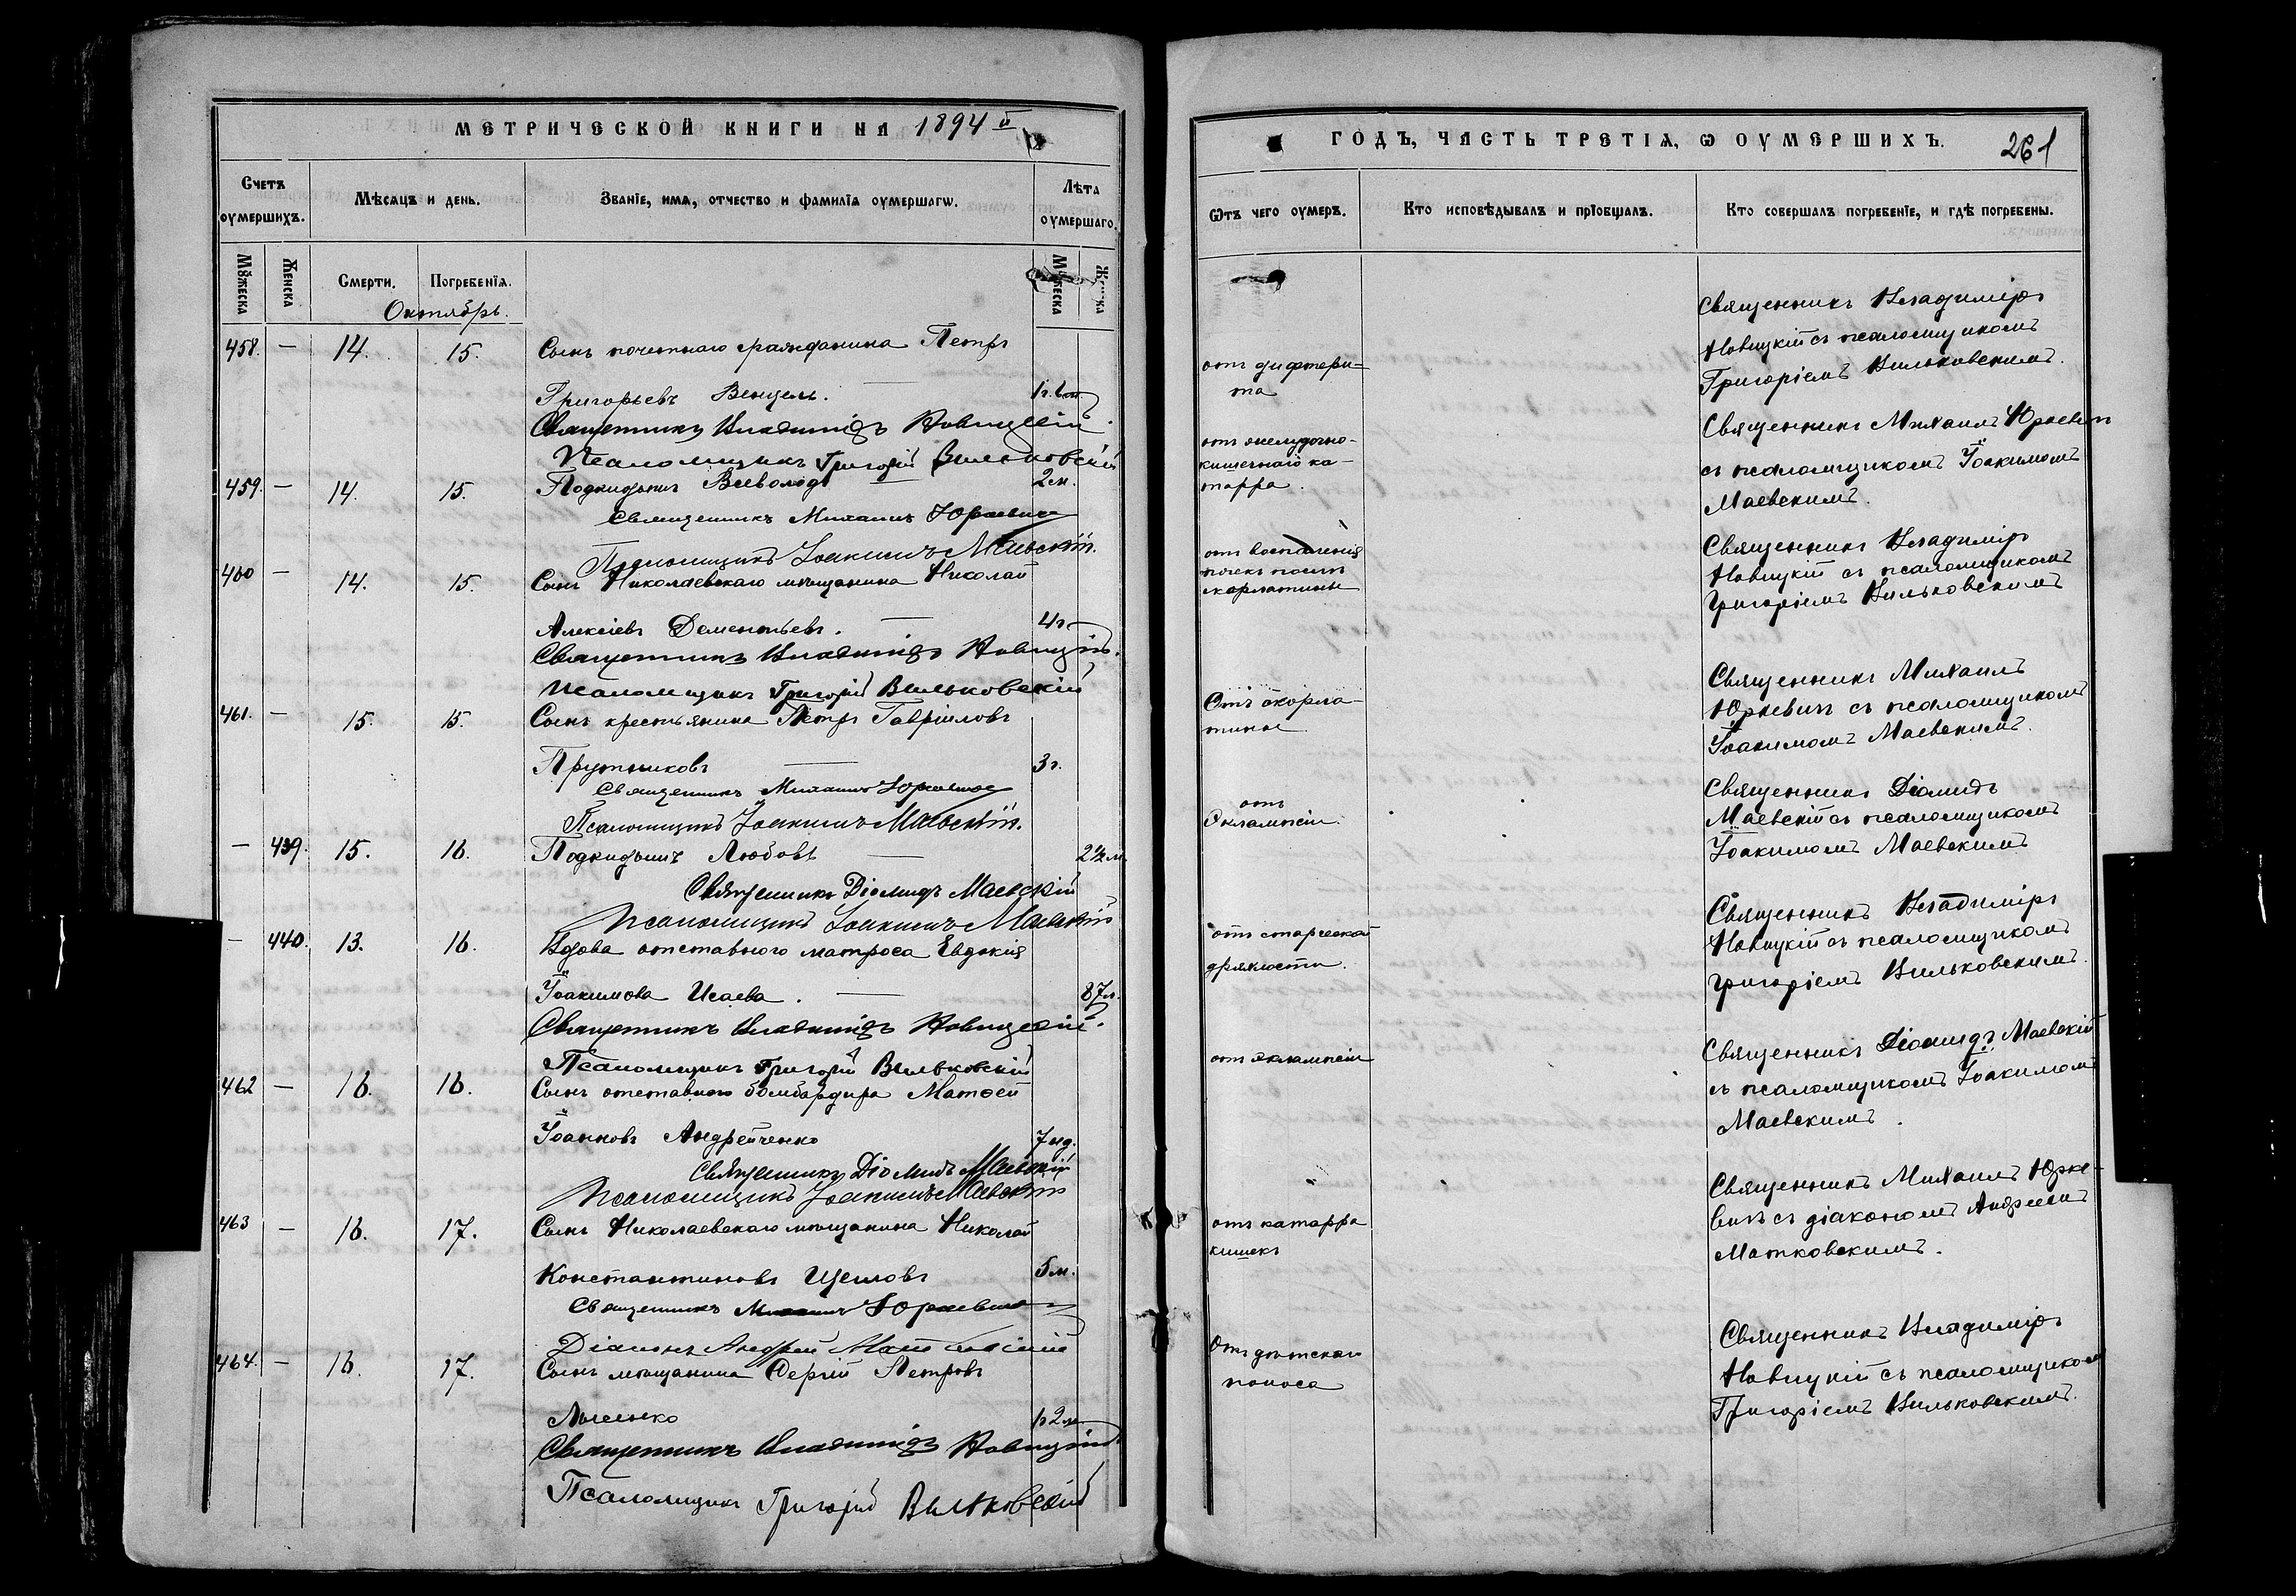 МЕТРИЧЕСКОЙ КНИГИ НА 1894 й
Счетъ оумершихъ.
Мѣсяцъ и день.
Званіе, имя, отчество и фамилія оумершагѡ.
Лѣта оумершаго.
Мꙋжеска
Женска
Смерти.
Погребенія.
Мꙋжеска
Октябрь.
458. — 14. 15. Сынъ почетнаго гражданина Петръ
Григорьевъ Венцель. — 1 г.
Священникъ Владиміръ Новицкій.
Псаломщикъ Григорій Вильковскій
459. — 14. 15. Подкидышъ Всеволодъ — 2 м.
Священникъ Михаилъ Юркевичъ
Псаломщикъ Іоакимъ Маевскій.
460 — 14. 15. Сынъ Николаевскаго мѣщанина Николай
Алексіевъ Дементьевъ. — 4 г.
Священникъ Владиміръ Новицкій.
Псаломщикъ Григорій Вильковскій
461. — 15. 15. Сынъ крестьянина Петръ Гавріиловъ
Прутниковъ — 3 г.
Священникъ Михаилъ Юркевичъ
Псаломщикъ Іоакимъ Маевскій.
— 439. 15. 16. Подкидышъ Любовь — 2½ м.
Священникъ Діомидъ Маевскій
Псаломщикъ Іоакимъ Маевскій
— 440. 13. 16. Вдова отставного матроса Евдокія
Іоакимова Исаева. — 87 л.
Священникъ Владиміръ Новицкій.
Псаломщикъ Григорій Вильковскій
462 — 16. 16. Сынъ отставного бомбардира Матѳей
Іоанновъ Андрейченко 7 нд.
Священникъ Діомидъ Маевскій
Псаломщикъ Іоакимъ Маевскій
463 — 16. 17. Сынъ Николаевскаго мѣщанина Николай
Константиновъ Щегловъ 5 м.
Священникъ Михаилъ Юркевичъ
Діаконъ Андрей Матковскій
464. — 16. 17. Сынъ мѣщанина Сергій Петровъ
Лысенко 1 г 2 м
Священникъ Владиміръ Новицкій
Псаломщикъ Григорій Вильковскій
ГОДЪ, ЧАСТЬ ТРЕТІЯ, Ѡ ОУМЕРШИХЪ.
261
Ѿтъ чего оумеръ.
Кто исповѣдывалъ и пріобщалъ.
Кто совершалъ погребеніе, и гдѣ погребены.
отъ дифтери-
та
Священникъ Владиміръ
Новицкій съ псаломщикомъ
Григоріемъ Вильковскимъ.
отъ желудочно-
кишечнаго ка-
тарра.
Священникъ Михаилъ Юркевичъ
съ псаломщикомъ Іоакимомъ
Маевскимъ.
отъ воспаленія
почекъ послѣ
скарлатины
Священникъ Владиміръ
Новицкій съ псаломщикомъ
Григоріемъ Вильковскимъ
Отъ скарла-
тины.
Священникъ Михаилъ
Юркевичъ съ псаломщикомъ
Іоакимомъ Маевскимъ.
отъ
Эклампсіи.
Священникъ Діомидъ
Маевскій съ псаломщикомъ
Іоакимомъ Маевскимъ
отъ старческой
дряхлости.
Священникъ Владиміръ
Новицкій съ псаломщикомъ
Григоріемъ Вильковскимъ.
отъ эклампсіи
Священникъ Діомидъ Маевскій
съ псаломщикомъ Іоакимомъ
Маевскимъ.
отъ катарра
кишекъ
Священникъ Михаилъ Юрке-
вичъ съ діакономъ Андреемъ
Матковскимъ.
Отъ дѣтскаго
поноса
Священникъ Владиміръ
Новицкій съ псаломщикомъ
Григоріемъ Вильковскимъ.